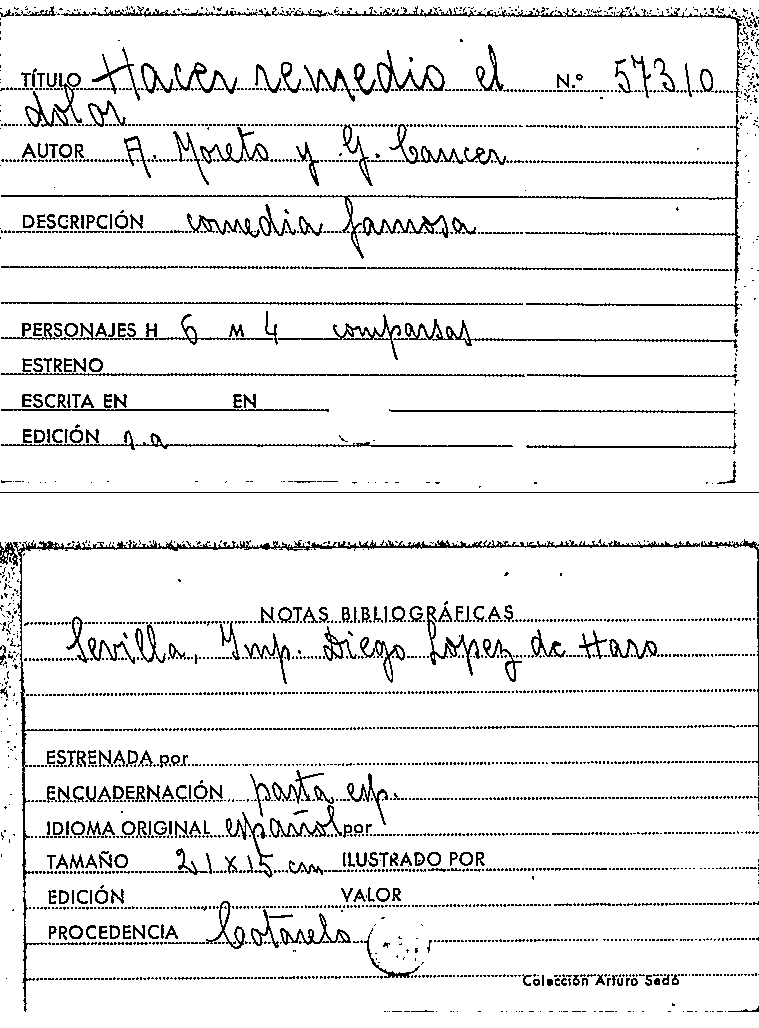 TÍTULO Hacer remedio el N.º 57310
dolor
AUTOR A. Moreto y G. Cancer
DESCRIPCIÓN comedia famosa
PERSONAJES H 6 M 4 comparsas
ESTRENO
ESCRITA EN EN
EDICIÓN s.a
NOTAS BIBLIOGRÁFICAS
Sevilla, Imp. Diego Lopez de Haro
ESTRENADA por
ENCUADERNACIÓN pasta esp.
IDIOMA ORIGINAL español por
TAMAÑO 21 x 15 cm ILUSTRADO POR
EDICIÓN VALOR
PROCEDENCIA Cotarelo
Colección Arturo Sedó